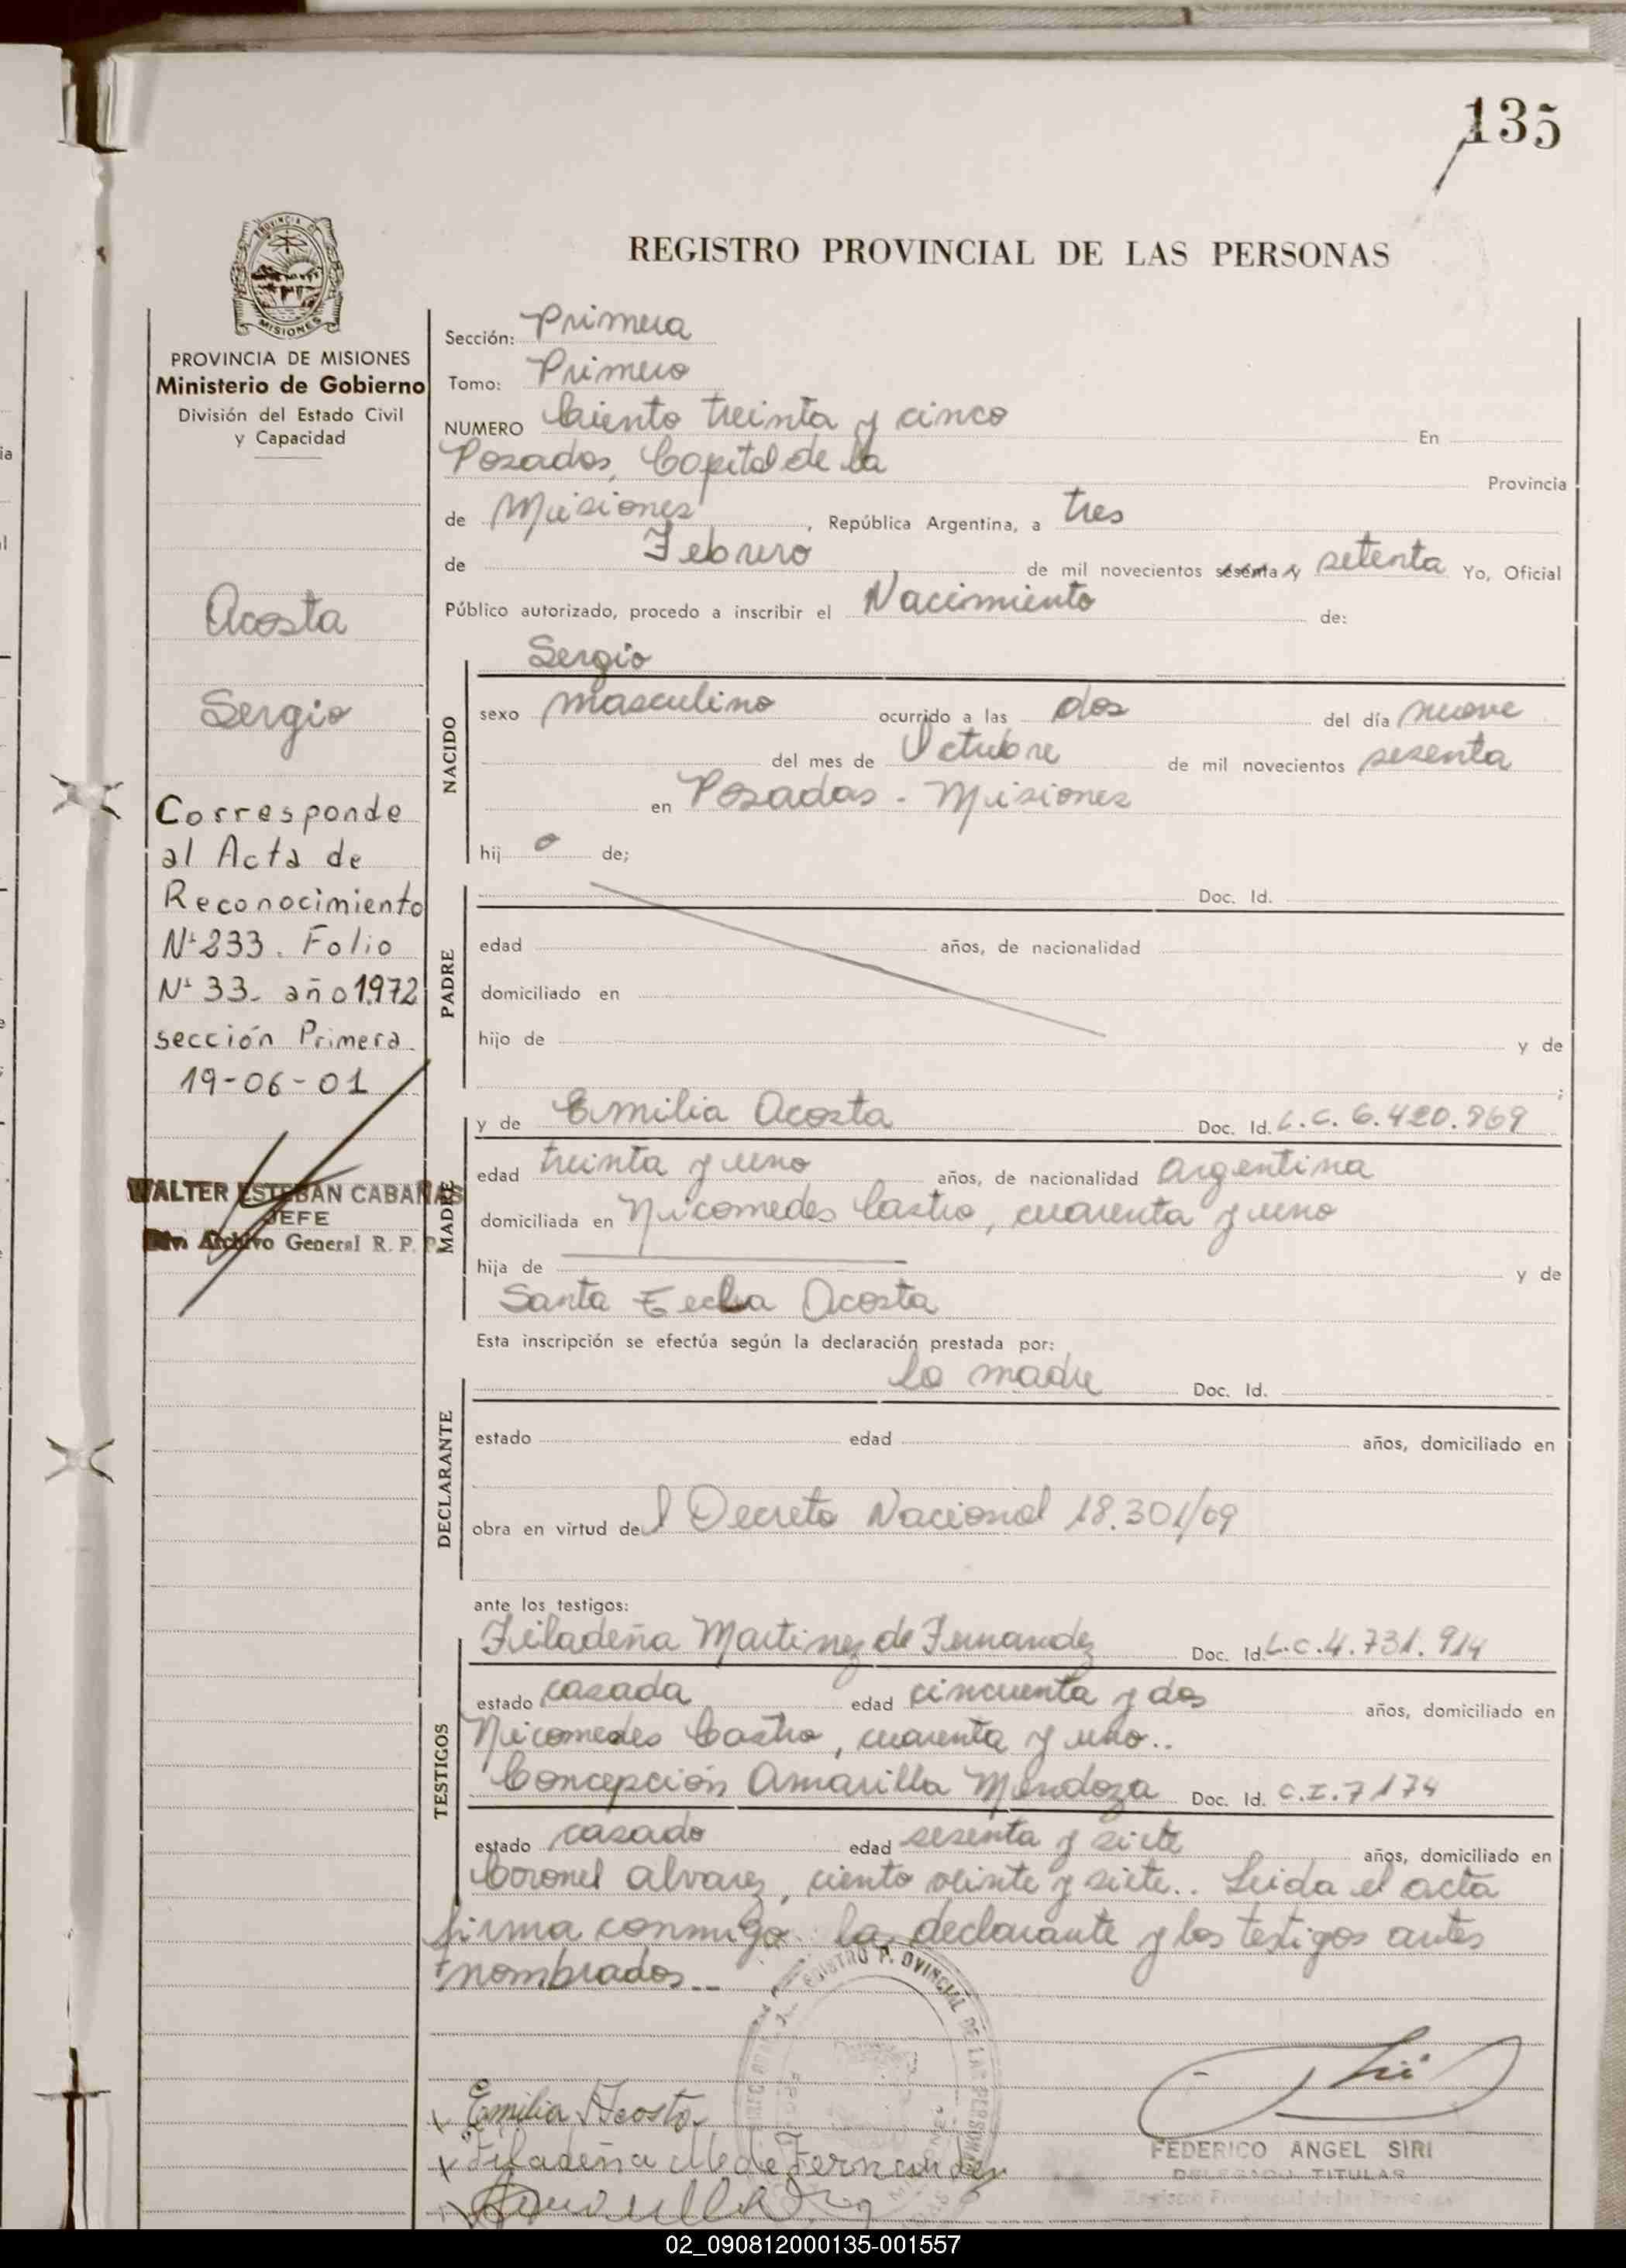 135
PROVINCIA DE MISIONES
Ministerio de Gobierno
División del Estado Civil
y Capacidad
REGISTRO PROVINCIAL DE LAS PERSONAS
Sección: Primera
Tomo: Primero
NUMERO Ciento treinta y cinco En
Posadas, Capital de la Provincia
de Misiones, República Argentina, a tres
de Febrero de mil novecientos sesenta y setenta Yo, Oficial
Público autorizado, procedo a inscribir el Nacimiento de:
Acosta
Sergio
Corresponde
al Acta de
Reconocimiento
Nº 233. Folio
Nº 33- año 1972
sección Primera
19-06-01
WALTER ESTEBAN CABAÑAS
JEFE
Div. Archivo General R. P. P.
NACIDO
Sergio
sexo masculino ocurrido a las dos del día nueve
del mes de Octubre de mil novecientos sesenta
en Posadas - Misiones
hij o de;
PADRE
Doc. Id.
edad años, de nacionalidad
domiciliado en
hijo de y de
;
MADRE
y de Emilia Acosta Doc. Id. L.C. 6.420.869
edad treinta y uno años, de nacionalidad argentina
domiciliada en Nicomedes Castro, cuarenta y uno
hija de y de
Santa Tecla Acosta
Esta inscripción se efectúa según la declaración prestada por:
DECLARANTE
la madre Doc. Id.
estado edad años, domiciliado en
obra en virtud del Decreto Nacional 18.301/69
ante los testigos:
TESTIGOS
Filadeña Martinez de Fernandez Doc. Id. L.C. 4.731.914
estado casada edad cincuenta y dos años, domiciliado en
Nicomedes Castro, cuarenta y uno..
Concepción Amarilla Mendoza Doc. Id. C.I. 7174
estado casado edad sesenta y siete años, domiciliado en
Coronel Alvarez, ciento veinte y siete.. Leida el acta
firma conmigo la declarante y los testigos antes
nombrados..
Emilia Acosta
Filadeña M de Fernandez
FEDERICO ANGEL SIRI
DELEGADO TITULAR
02_090812000135-001557